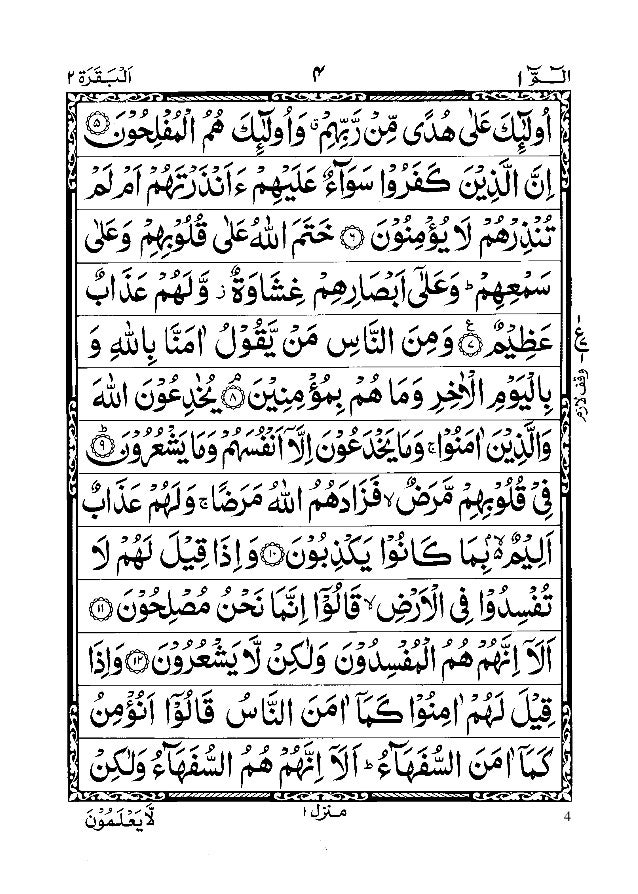 الٓـمّٓ ١ ٤ اَلْبَقَرَة ٢
اُولٰٓئِكَ عَلٰى هُدًى مِّنْ رَّبِّهِمْ ۗ وَاُولٰٓئِكَ هُمُ الْمُفْلِحُوْنَ ۝٥
اِنَّ الَّذِيْنَ كَفَرُوْا سَوَآءٌ عَلَيْهِمْ ءَاَنْذَرْتَهُمْ اَمْ لَمْ
تُنْذِرْهُمْ لَا يُؤْمِنُوْنَ ۝٦ خَتَمَ اللّٰهُ عَلٰى قُلُوْبِهِمْ وَعَلٰى
سَمْعِهِمْ ؕ وَعَلٰٓى اَبْصَارِهِمْ غِشَاوَةٌ ز وَّلَهُمْ عَذَابٌ
عَظِيْمٌ ۝٧ ع وَمِنَ النَّاسِ مَنْ يَّقُوْلُ اٰمَنَّا بِاللّٰهِ وَ
بِالْيَوْمِ الْاٰخِرِ وَمَا هُمْ بِمُؤْمِنِيْنَ ۘ ۝٨ يُخٰدِعُوْنَ اللّٰهَ
وَالَّذِيْنَ اٰمَنُوْا ۚ وَمَا يَخْدَعُوْنَ اِلَّآ اَنْفُسَهُمْ وَمَا يَشْعُرُوْنَ ؕ ۝٩
فِيْ قُلُوْبِهِمْ مَّرَضٌ ۙ فَزَادَهُمُ اللّٰهُ مَرَضًا ۚ وَلَهُمْ عَذَابٌ
اَلِيْمٌۢ ۙ بِمَا كَانُوْا يَكْذِبُوْنَ ۝١٠ وَاِذَا قِيْلَ لَهُمْ لَا
تُفْسِدُوْا فِى الْاَرْضِ ۙ قَالُوْٓا اِنَّمَا نَحْنُ مُصْلِحُوْنَ ۝١١
اَلَآ اِنَّهُمْ هُمُ الْمُفْسِدُوْنَ وَلٰكِنْ لَّا يَشْعُرُوْنَ ۝١٢ وَاِذَا
قِيْلَ لَهُمْ اٰمِنُوْا كَمَآ اٰمَنَ النَّاسُ قَالُوْٓا اَنُؤْمِنُ
كَمَآ اٰمَنَ السُّفَهَآءُ ؕ اَلَآ اِنَّهُمْ هُمُ السُّفَهَآءُ وَلٰكِنْ
ع
وقف لازم
4 منزل ١ لَّا يَعْلَمُوْنَ